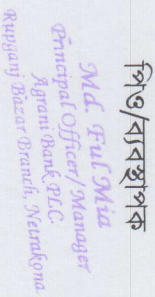 পিও/ব্যবস্থাপক
Md. Ful Mia
Principal Officer/ Manager
Agrani Bank PLC.
Rupganj Bazar Branch, Netrakona